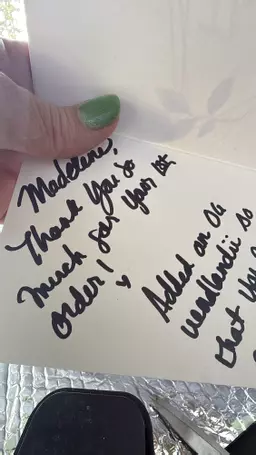 Madelene,
Thank You so
much for your
order!
Added an OG
wendlandii so
that you